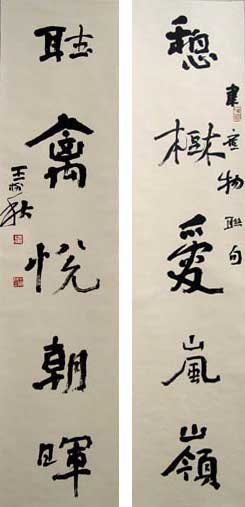 憩樾愛嵐嶺
書物聯句
聽禽悦朝暉
王秋